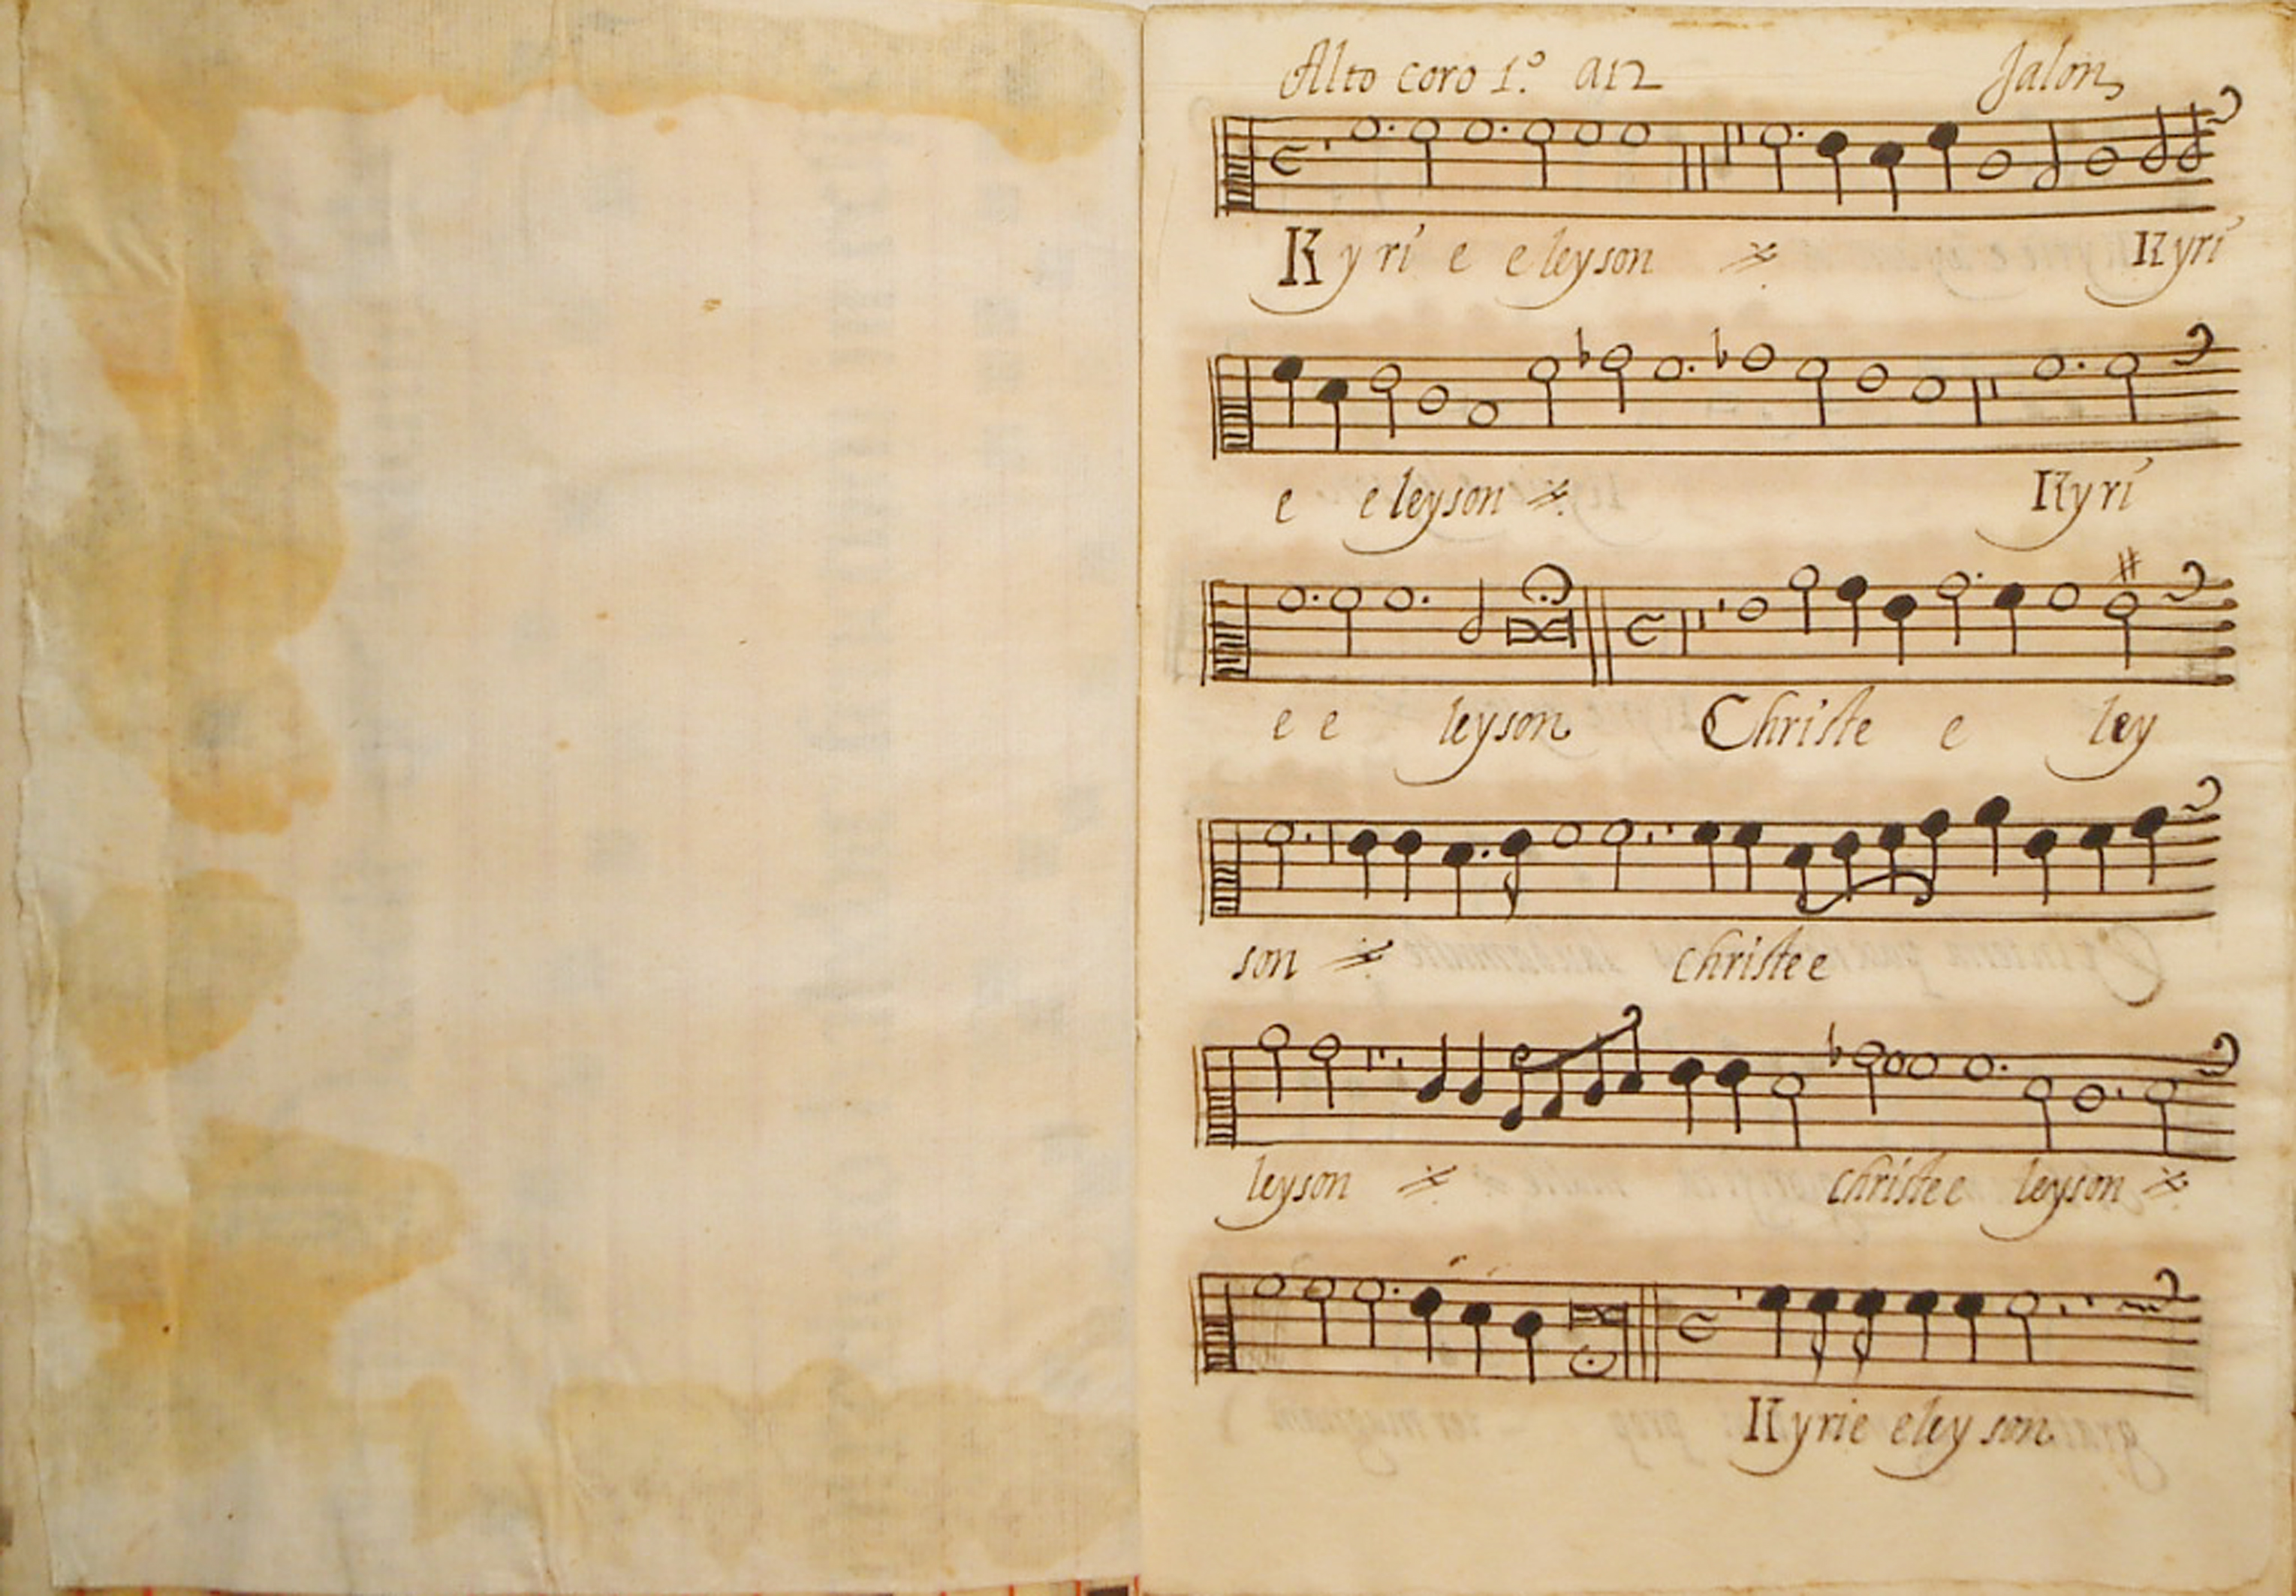 Alto coro 1.º a12 Jalon
Kyri e eleyson Kyri
e eleyson Kyri
e e leyson Christe e ley
son christe e
leyson christe e leyson
Kyrie eleyson